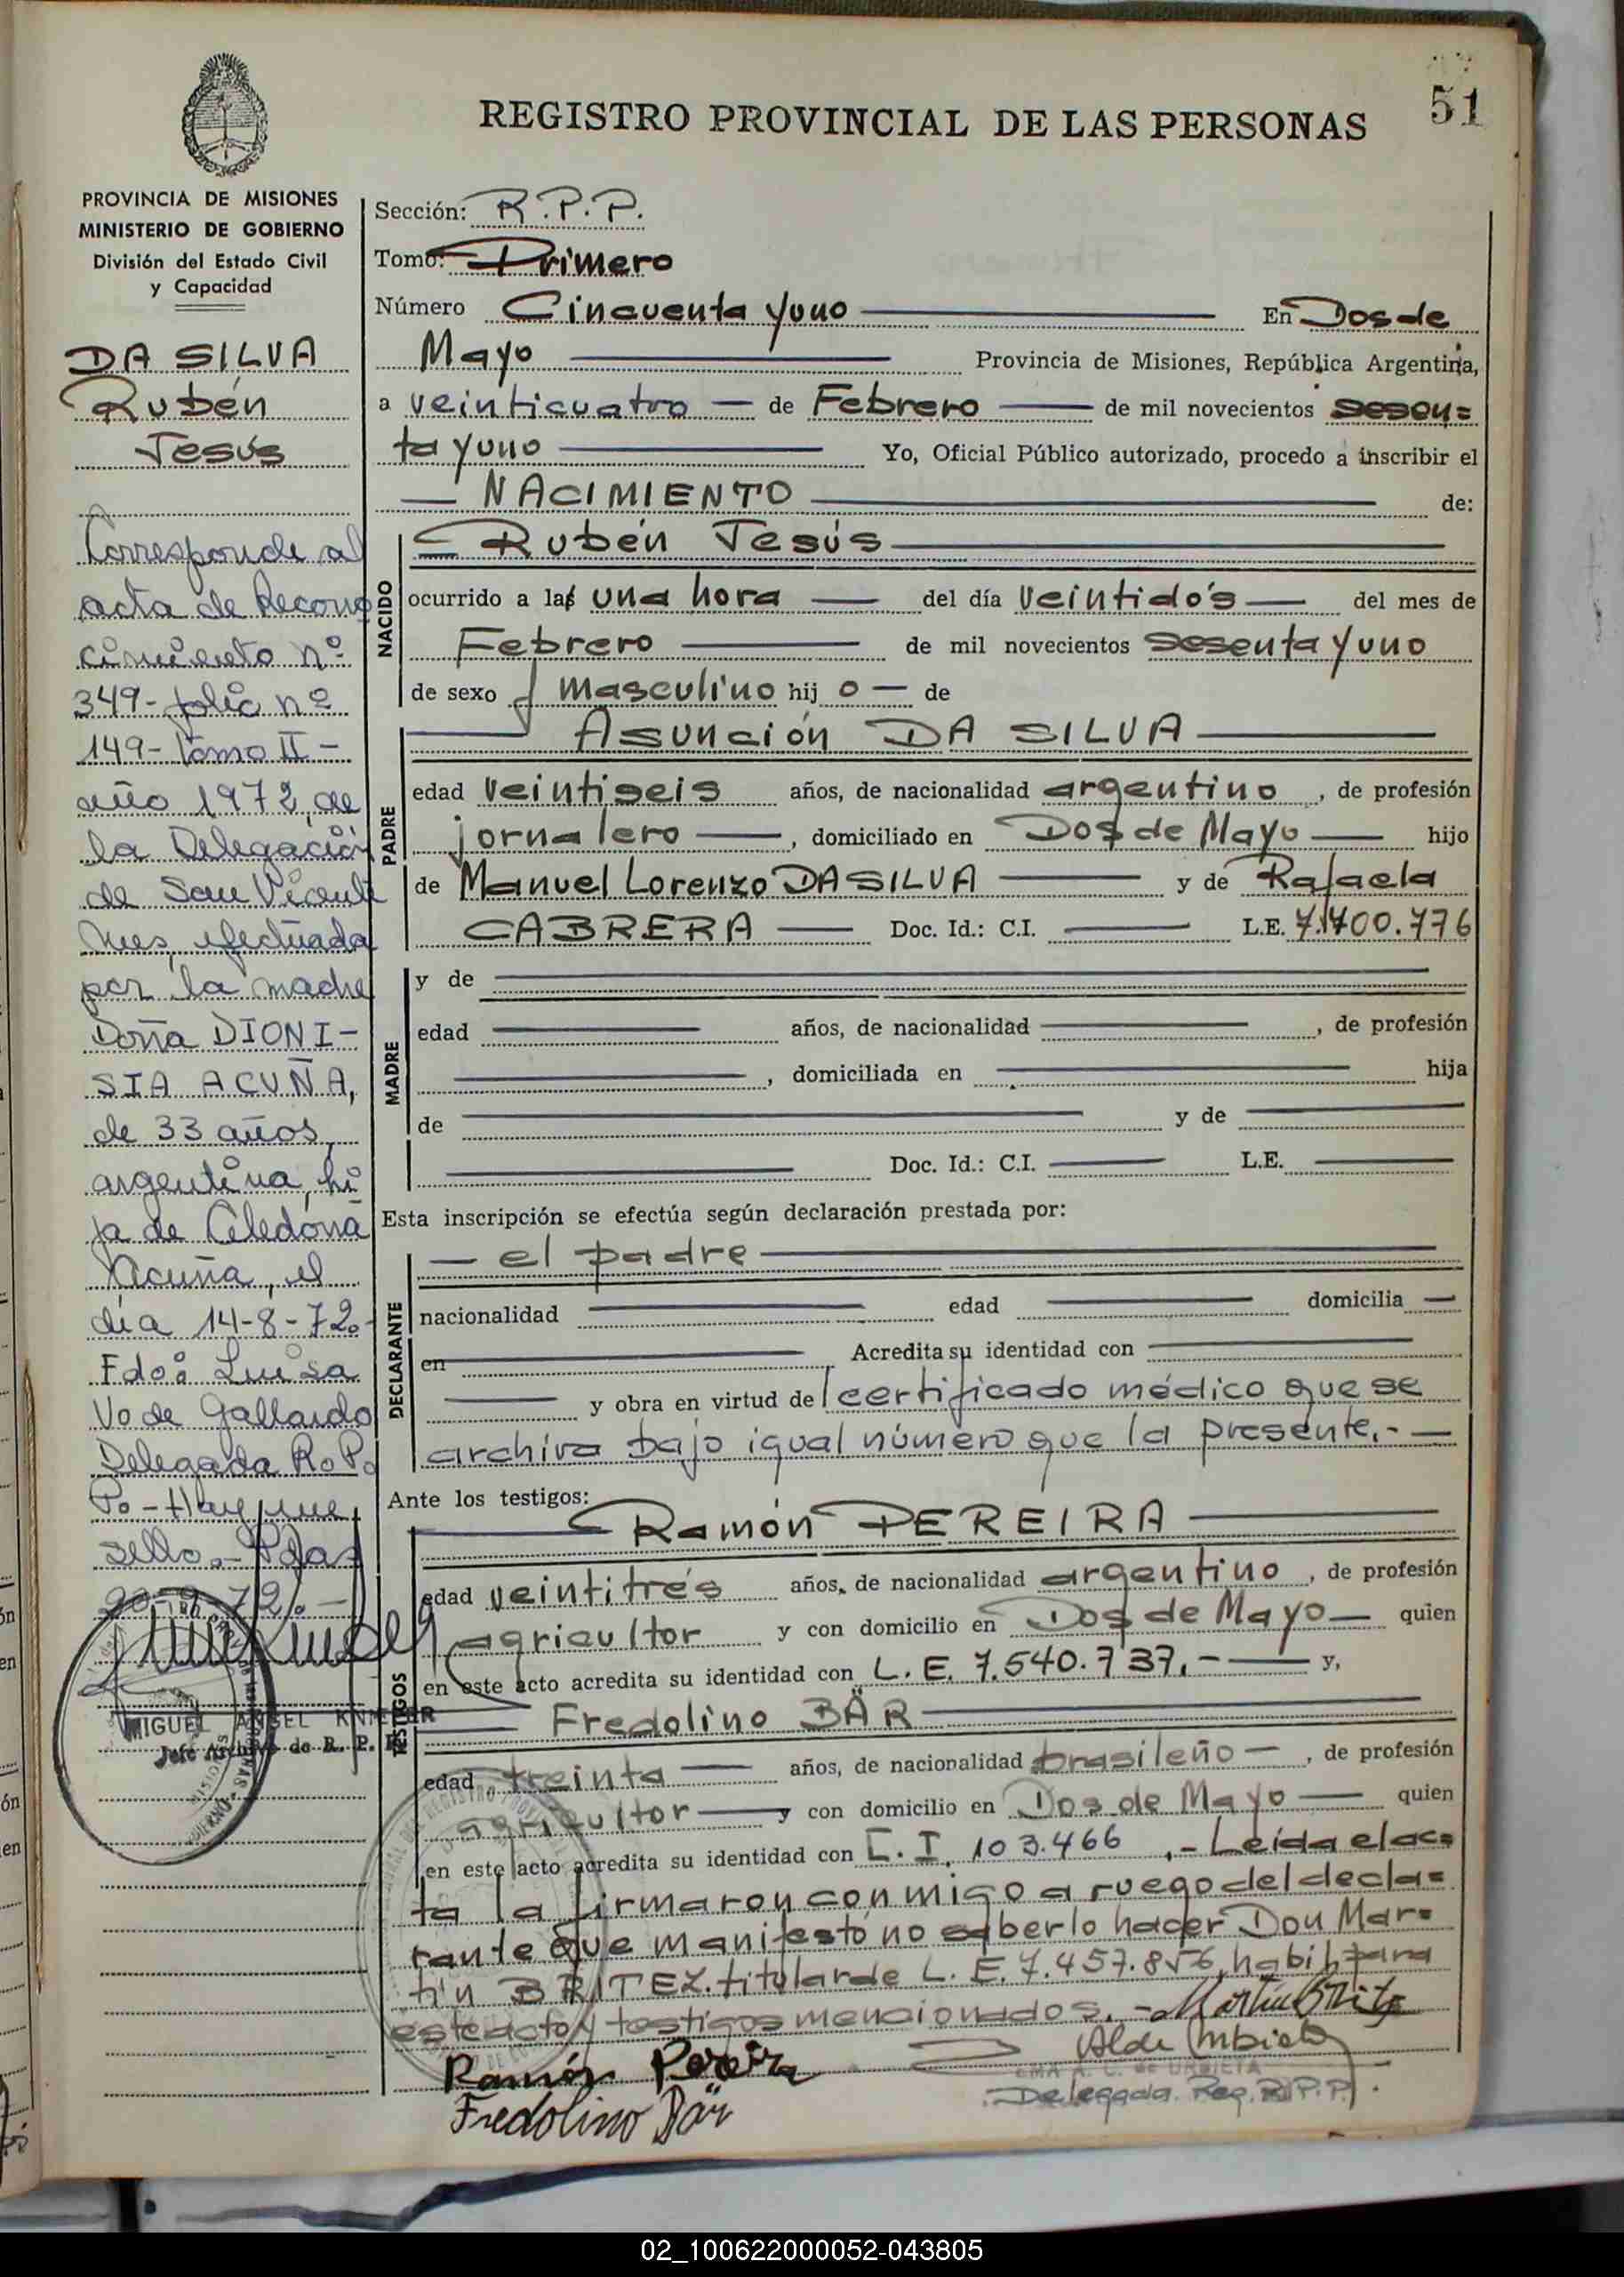 51
REGISTRO PROVINCIAL DE LAS PERSONAS
PROVINCIA DE MISIONES
MINISTERIO DE GOBIERNO
División del Estado Civil
y Capacidad
DA SILVA
Rubén
Jesús
Corresponde al
acta de Recono
cimiento nº
349- folio nº
149- tomo II -
año 1972, de
la Delegación
de San Vicente
Mnes, efectuada
por la madre
Doña DIONI-
SIA ACUÑA,
de 33 años,
argentina, hi
ja de Celedona
Acuña, el
día 14-8-72.-
Fdo: Luisa
V. de Gallardo
Delegada R.P.
P.- Hay un
sello.- Pdas
20-9-72.-
MIGUEL ANGEL
Jefe Archivo de R. P. P.
Sección: R.P.P.
Tomo: Primero
Número Cincuenta y uno En Dos de
Mayo Provincia de Misiones, República Argentina,
a veinticuatro de Febrero de mil novecientos sesen=
ta y uno Yo, Oficial Público autorizado, procedo a inscribir el
NACIMIENTO de:
NACIDO
Rubén Jesús
ocurrido a las una hora del día veintidós del mes de
Febrero de mil novecientos sesenta y uno
de sexo masculino hij o de
PADRE
Asunción DA SILVA
edad veintiseis años, de nacionalidad argentino, de profesión
jornalero, domiciliado en Dos de Mayo hijo
de Manuel Lorenzo DA SILVA y de Rafaela
CABRERA Doc. Id.: C.I. L.E. 7.700.776
MADRE
y de
edad años, de nacionalidad, de profesión
, domiciliada en hija
de y de
Doc. Id.: C.I. L.E.
Esta inscripción se efectúa según declaración prestada por:
DECLARANTE
el padre
nacionalidad edad domicilia
en Acredita su identidad con
y obra en virtud de certificado médico que se
archiva bajo igual número que la presente.-
Ante los testigos:
TESTIGOS
Ramón PEREIRA
edad veintitrés años, de nacionalidad argentino, de profesión
agricultor y con domicilio en Dos de Mayo quien
en este acto acredita su identidad con L.E. 7.540.737.- y,
Fredolino BÄR
edad treinta años, de nacionalidad brasileño, de profesión
agricultor y con domicilio en Dos de Mayo quien
en este acto acredita su identidad con C.I. 103.466.- Leída el ac=
ta la firmaron conmigo a ruego del decla=
rante que manifestó no saberlo hacer Don Mar=
tín BRITEZ. titular de L.E. 7.457.856, habil para
este acto y testigos mencionados.- Martin Britez
Ramón Pereira
Fredolino Bär
Delegada Reg. R.P.P.
02_100622000052-043805